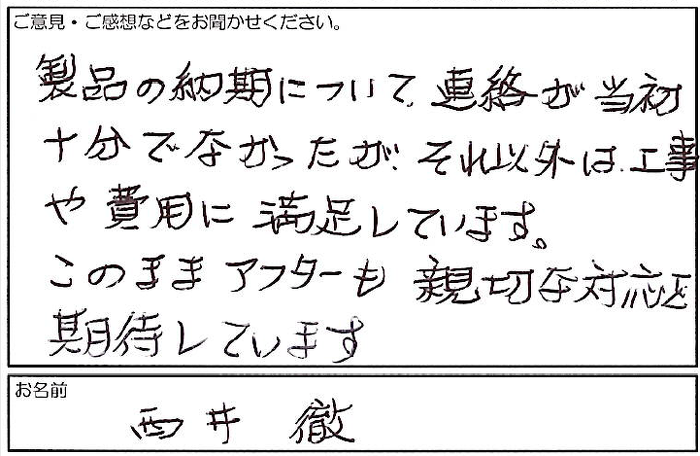 ご意見・ご感想などをお聞かせください。
製品の納期について、連絡が当初
十分でなかったが、それ以外は、工事
や費用に満足しています。
このままアフターも親切な対応を
期待しています
お名前
西井 徹